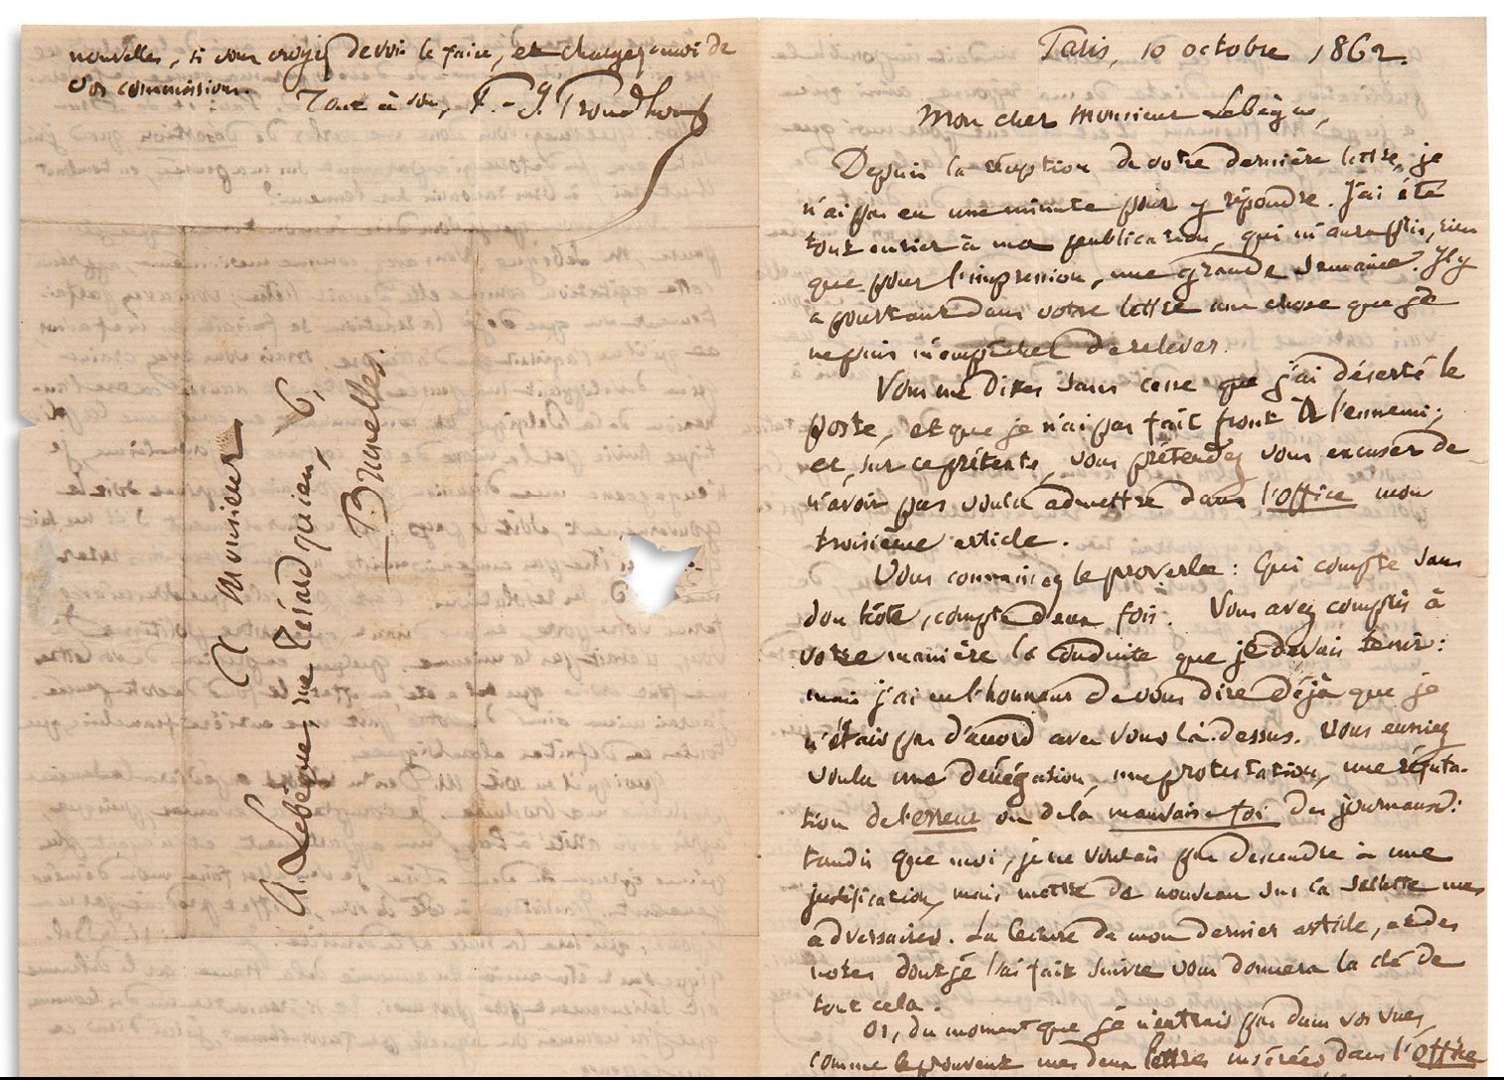 nouvelles, si vous croyez devoir le faire, et chargez-moi de
vos commissions.
Tout à vous, P.-J. Proudhon
A Monsieur
A. Lebègue, rue Térard quien, 6,
Bruxelles.
Paris, 10 octobre 1862.
Mon cher Monsieur Lebègue,
Depuis la réception de votre dernière lettre, je
n'ai pas eu une minute pour y répondre. J'ai été
tout entier à ma publication, qui m'aura pris, rien
que pour l'impression, une grande semaine. Il y
a pourtant dans votre lettre une chose que je
ne puis m'empêcher de relever.
Vous me dites sans cesse que j'ai déserté le
poste, et que je n'ai pas fait front à l'ennemi;
et, sur ce prétexte, vous prétendez vous excuser de
n'avoir pas voulu admettre dans l'Office mon
troisième article.
Vous connaissez le proverbe : Qui compte sans
son hôte, compte deux fois. Vous avez compris à
votre manière la conduite que je devais tenir :
mais j'ai eu l'honneur de vous dire déjà que je
n'étais pas d'accord avec vous là-dessus. Vous eussiez
voulu une dénégation, une protestation, une réfuta-
tion de l'erreur ou de la mauvaise foi des journaux :
tandis que moi, je ne voulais pas descendre à une
justification, mais mettre de nouveau sur la sellette mes
adversaires. La lecture de mon dernier article, et des
notes dont je l'ai fait suivre vous donnera la clé de
tout cela.
Or, du moment que je n'entrais pas dans vos vues,
comme le prouvent mes deux lettres insérées dans l'Office